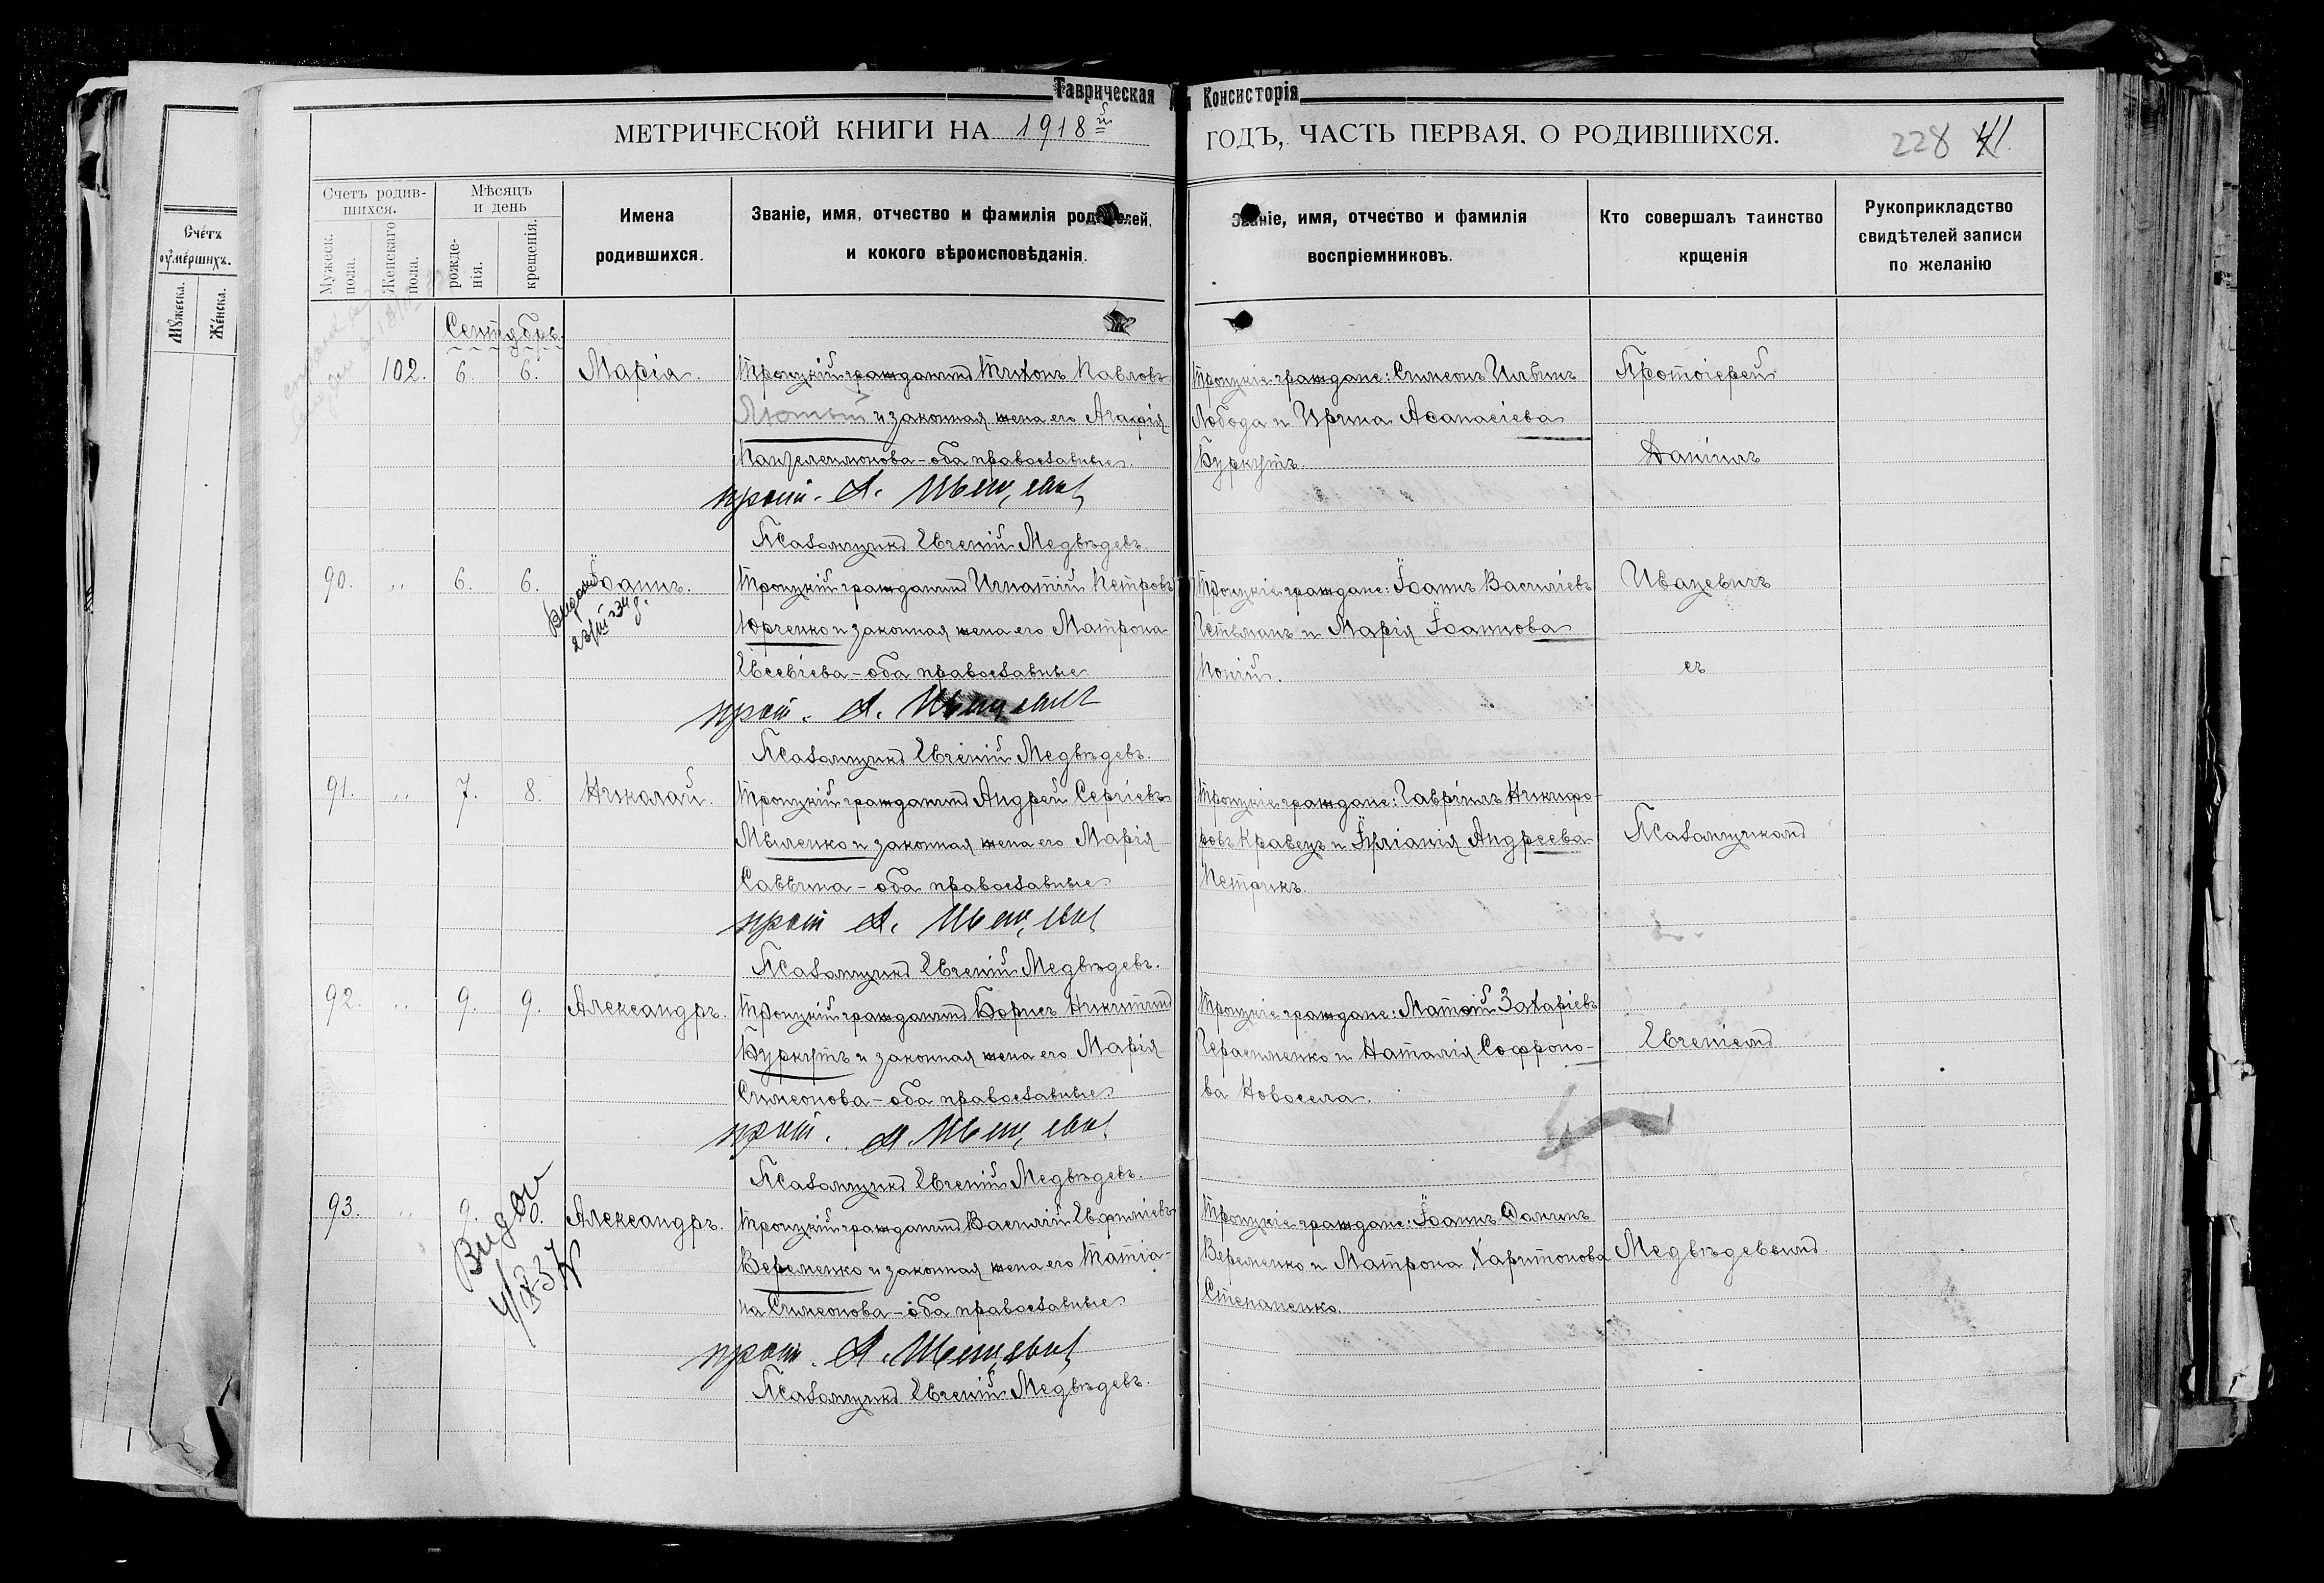 Таврическая Консисторія
МЕТРИЧЕСКОЙ КНИГИ НА 1918й ГОДЪ, ЧАСТЬ ПЕРВАЯ, О РОДИВШИХСЯ.
228
Счётъ
оумершихъ.
Мужеска.
Женска.
Счетъ родив-
шихся.
Мужеск.
пола.
Женскаго
пола.
Мѣсяцъ
и день
рожде-
нія.
крещенія.
Имена
родившихся.
Званіе, имя, отчество и фамилія родителей,
и кокого вѣроисповѣданія.
Званіе, имя, отчество и фамилія
воспріемниковъ.
Кто совершалъ таинство
крщенія
Рукоприкладство
свидѣтелей записи
по желанію
Сентябрь.
102. 6. 6. Марія.
Троицкій гражданинъ Тихонъ Павловъ
Лютый и законная жена его Агафія
Пантелеимонова - оба православные.
прот. А.
Псаломщикъ Евгеній Медвѣдевъ.
Троицкіе граждане: Симеонъ Ильинъ
Лобода и Ирина Аѳанасіева
Буркутъ.
Протоіерей
Даніилъ
90. „ 6. 6. Іоаннъ.
23/III 34 г.
Троицкій гражданинъ Игнатій Петровъ
Юрченко и законная жена его Матрона
Евсевіева - оба православные
прот. А.
Псаломщикъ Евгеній Медвѣдевъ.
Троицкіе граждане: Іоаннъ Василіевъ
Гетьманъ и Марія Іоаннова
Копій.
Ивацевичъ
съ
91. „ 7. 8. Николай.
Троицкій гражданинъ Андрей Сергіевъ
Мыленко и законная жена его Марія
Саввина - оба православные
прот А.
Псаломщикъ Евгеній Медвѣдевъ.
Троицкіе граждане: Гавріилъ Никифо-
ровъ Кравецъ и Іуліанія Андреева
Петрикъ.
Псаломщикомъ
92. „ 9. 9. Александръ.
Троицкій гражданинъ Борисъ Никитинъ
Буркутъ и законная жена его Марія
Симеонова - оба православные
прот. А.
Псаломщикъ Евгеній Медвѣдевъ.
Троицкіе граждане: Матѳій Захаріевъ
Герасименко и Наталія Софроно-
ва Новосела.
Евгеніемъ
93. „ 9. Александръ.
Видан
Троицкій гражданинъ Василій Евфиміевъ
Веременко и законная жена его Татіа-
на Симеонова - оба православные
прот. А.
Псаломщикъ Евгеній Медвѣдевъ.
Троицкіе граждане: Іоаннъ Ѳоминъ
Веременко и Матрона Харитонова
Степаненко.
Медвѣдевымъ.